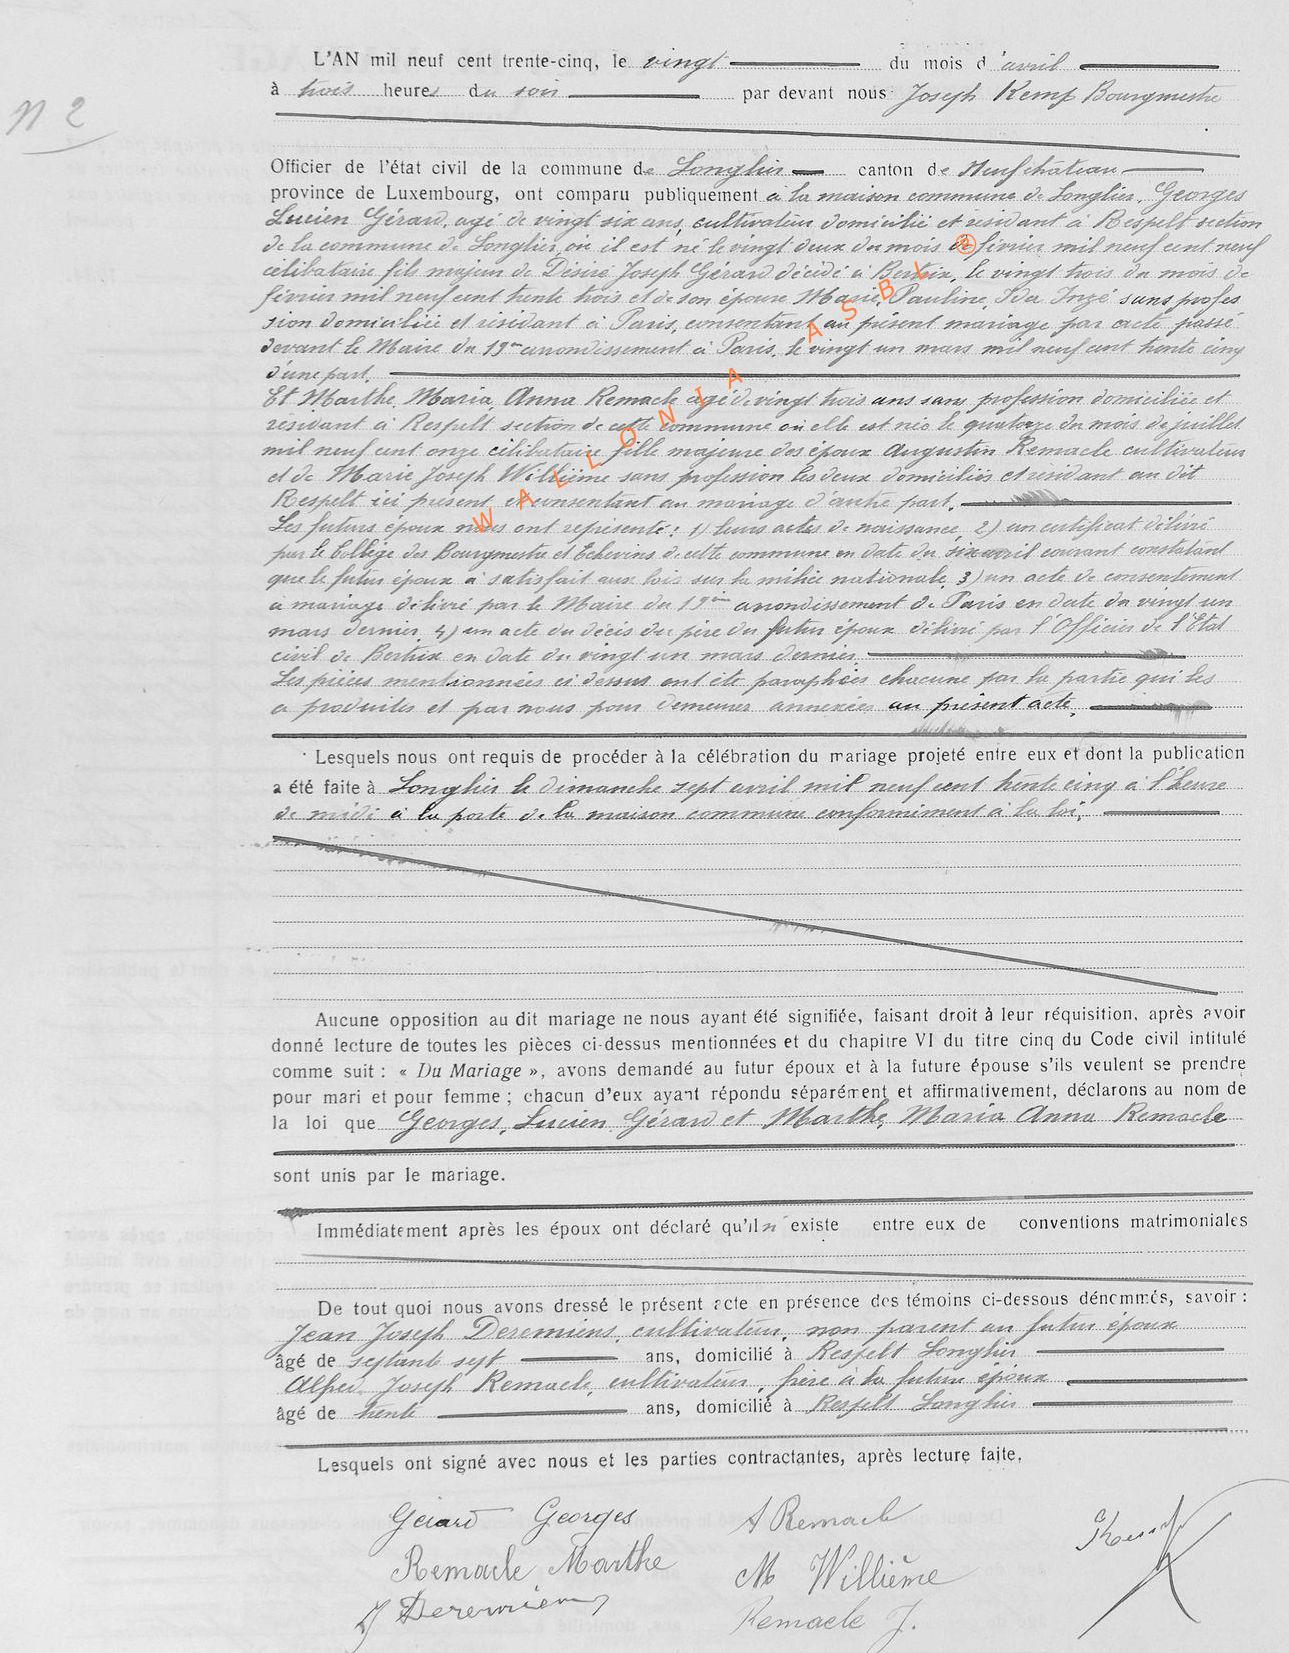 L'AN mil neuf cent trente-cinq, le vingt du mois d'avril
à trois heures du soir par devant nous Joseph Kemp Bourgmestre
N 2
Officier de l'état civil de la commune de Longlier canton de Neufchâteau
province de Luxembourg, ont comparu publiquement à la maison commune de Longlier, Georges
Lucien Gérard, agé de vingt six ans, cultivateur domicilié et résidant à Respelt section
de la commune de Longlier où il est né le vingt deux du mois de février mil neuf cent neuf
célibataire fils majeur de Désiré Joseph Gérard décédé à Bertrix, le vingt trois du mois de
février mil neuf cent trente trois et de son épouse Marie, Pauline, Ida Inzé sans profes
sion domiciliée et résidant à Paris, consentant au présent mariage par acte passé
devant le Maire du 19me arrondissement à Paris, le vingt un mars mil neuf cent trente cinq
d'une part.
Et Marthe, Maria, Anna Remacle agée de vingt trois ans sans profession domiciliée et
résidant à Respelt section de cette commune où elle est née le quatorze du mois de juillet
mil neuf cent onze célibataire fille majeure des époux Augustin Remacle cultivateur
et de Marie Joseph Willième sans profession les deux domiciliés et résidant au dit
Respelt ici présent et consentant au mariage d'autre part.
Les futurs époux nous ont représenté : 1) leurs actes de naissance, 2) un certificat délivré
par le Collège des Bourgmestre et Echevins de cette commune en date du six avril courant constatant
que le futur époux a satisfait aux lois sur la milice nationale, 3) un acte de consentement
à mariage délivré par le Maire du 19ème arrondissement de Paris en date du vingt un
mars dernier, 4) un acte du décès du père du futur époux délivré par l'Officier de l'Etat
civil de Bertrix en date du vingt un mars dernier.
Les pièces mentionnées ci dessus ont été paraphées chacune par la partie qui les
a produites et par nous pour demeurer annexées au présent acte.
Lesquels nous ont requis de procéder à la célébration du mariage projeté entre eux et dont la publication
a été faite à Longlier le dimanche sept avril mil neuf cent trente cinq à l'heure
de midi à la porte de la maison commune conformément à la loi.
Aucune opposition au dit mariage ne nous ayant été signifiée, faisant droit à leur réquisition, après avoir
donné lecture de toutes les pièces ci-dessus mentionnées et du chapitre VI du titre cinq du Code civil intitulé
comme suit : « Du Mariage », avons demandé au futur époux et à la future épouse s'ils veulent se prendre
pour mari et pour femme ; chacun d'eux ayant répondu séparément et affirmativement, déclarons au nom de
la loi que Georges, Lucien Gérard et Marthe, Maria Anna Remacle
sont unis par le mariage.
Immédiatement après les époux ont déclaré qu'il n'existe entre eux de conventions matrimoniales
De tout quoi nous avons dressé le présent acte en présence des témoins ci-dessous dénommés, savoir :
Jean Joseph Deremiens, cultivateur, non parent au futur époux
âgé de septante sept ans, domicilié à Respelt Longlier
Alfred Joseph Remacle, cultivateur, frère à la future épouse
âgé de trente ans, domicilié à Respelt Longlier
Lesquels ont signé avec nous et les parties contractantes, après lecture faite.
Gérard Georges A Remacle
Remacle Marthe M Willième
J Deremiens Remacle J.
WALLONIA ASBL ®